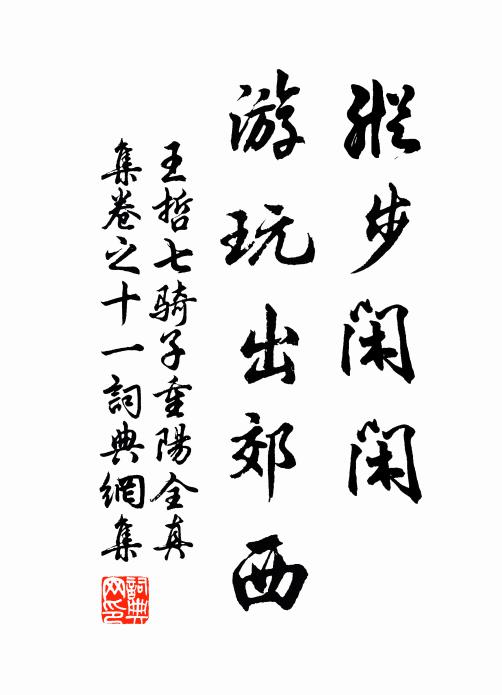 縱步閑閑
游玩出郊西
王哲七骑子重陽全真
集卷之十一詞典網集